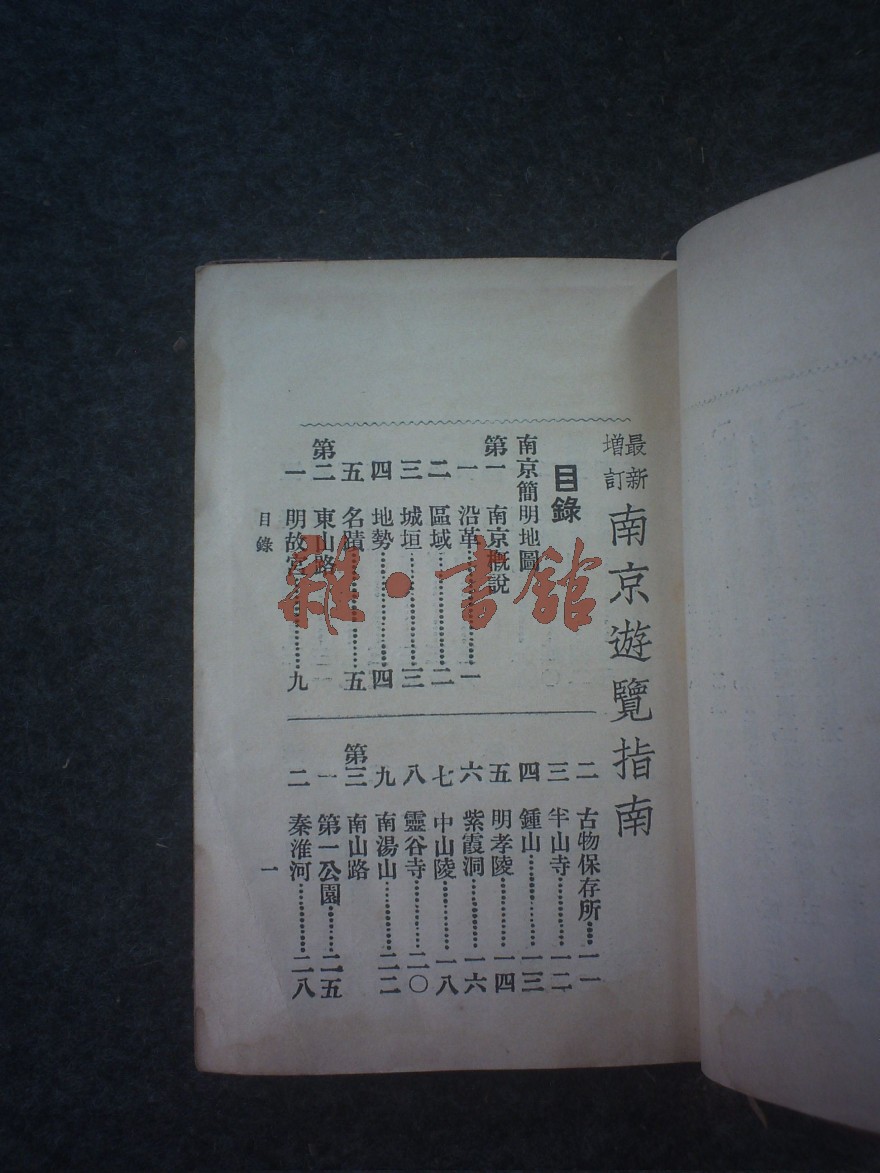 最新
增訂
南京遊覽指南
目錄
南京簡明地圖
第一 南京概說
一 沿革 一
二 區域 二
三 城垣 三
四 地勢 四
五 名蹟 五
第二 東山路
一 明故宮 九
二 古物保存所 一一
三 半山寺 一二
四 鍾山 一三
五 明孝陵 一四
六 紫霞洞 一六
七 中山陵 一八
八 靈谷寺 二〇
九 南湯山 二二
第三 南山路
一 第一公園 二五
二 秦淮河 二八
目錄
一
雜·書舘